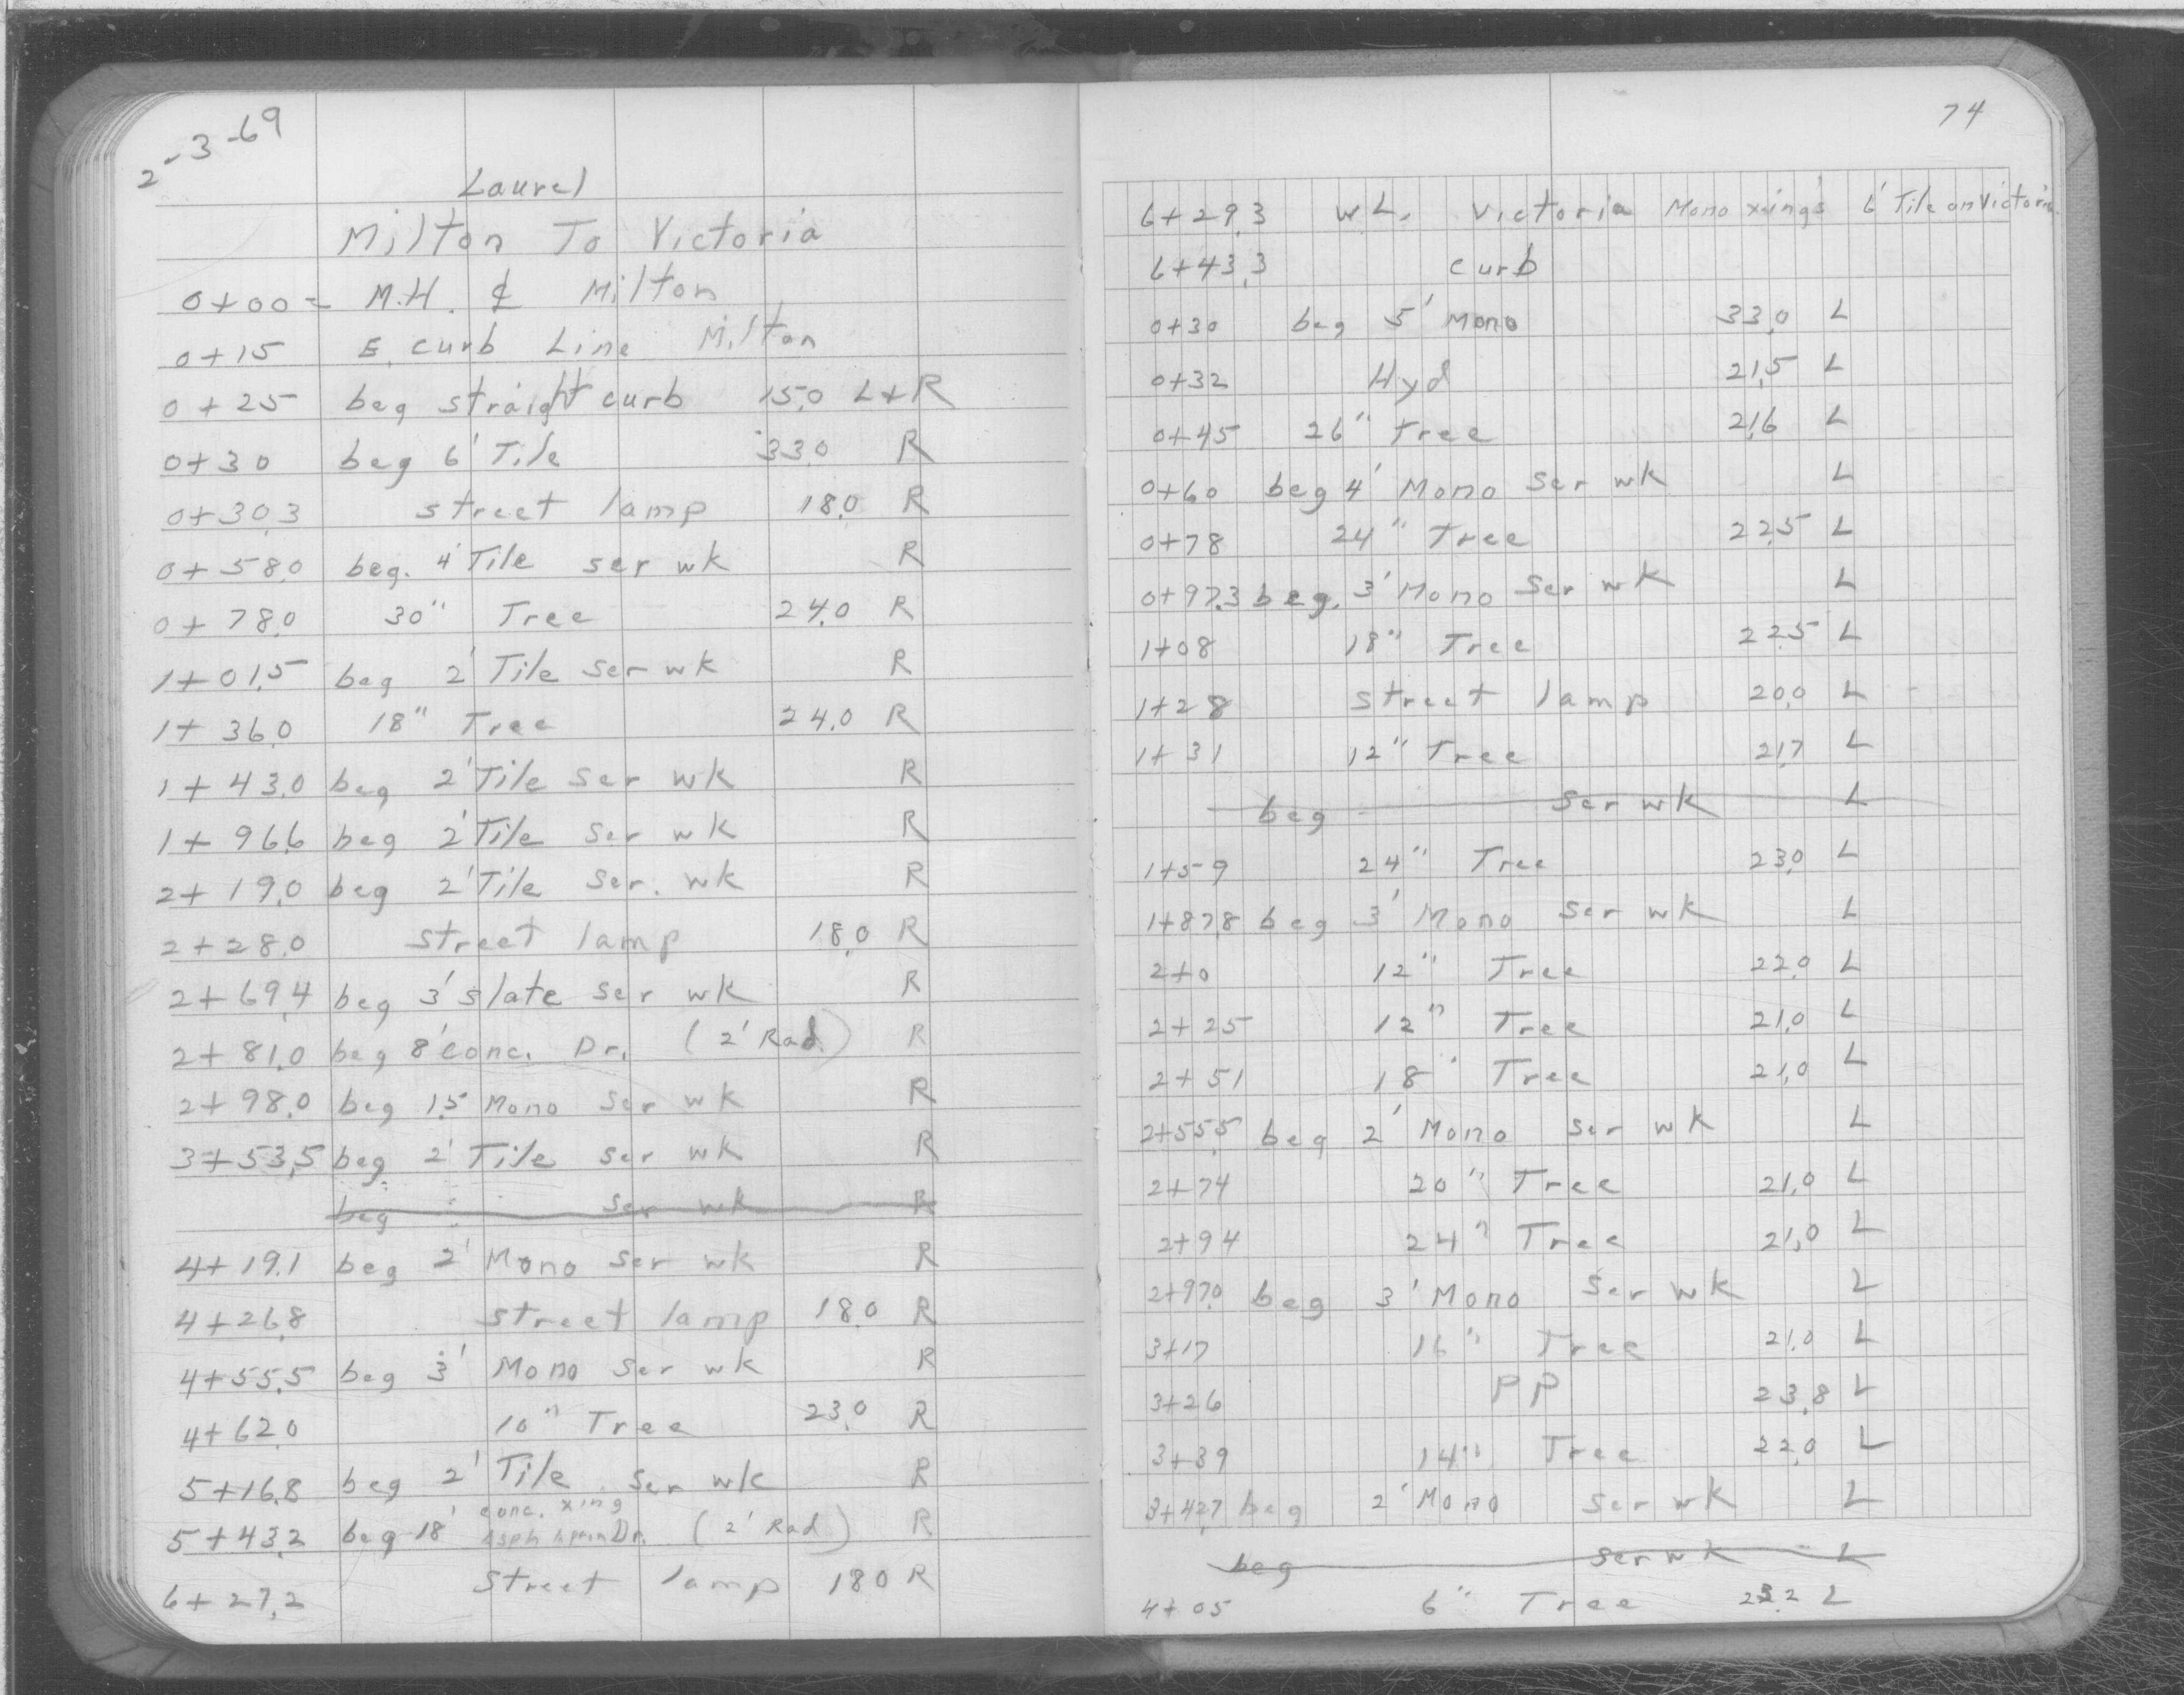 2-3-69
Laurel
Milton To Victoria
0+00 = M.H. ℄ Milton
0+15 E. curb Line Milton
0+25 beg straight curb 15.0 L+R
0+30 beg 6' Tile 33.0 R
0+30.3 street lamp 18.0 R
0+58.0 beg. 4' Tile ser wk R
0+78.0 30" Tree 24.0 R
1+01.5 beg 2' Tile ser wk R
1+36.0 18" Tree 24.0 R
1+43.0 beg 2' Tile ser wk R
1+96.6 beg 2' Tile ser wk R
2+19.0 beg 2' Tile ser. wk R
2+28.0 street lamp 18.0 R
2+69.4 beg 3' slate ser wk R
2+81.0 beg 8' conc. Dr. (2' Rad.) R
2+98.0 beg 1.5 Mono ser wk R
3+53.5 beg 2' Tile ser wk R
beg ser wk R
4+19.1 beg 2' Mono ser wk R
4+26.8 street lamp 18.0 R
4+55.5 beg 3' Mono ser wk R
4+62.0 10" Tree 23.0 R
5+16.8 beg 2' Tile ser wk R
conc. xing
5+43.2 beg 18' Asph Dr. (2' Rad) R
6+27.2 street lamp 18.0 R
74
6+29.3 WL. Victoria Mono xing's 6' Tile on Victoria
6+43.3 curb
0+30 beg 5' Mono 33.0 L
0+32 Hyd 21.5 L
0+45 26" Tree 21.6 L
0+60 beg 4' Mono Ser wk L
0+78 24" Tree 22.5 L
0+97.3 beg. 3' Mono Ser wk L
1+08 18" Tree 22.5 L
1+28 street lamp 20.0 L
1+31 12" Tree 21.7 L
beg Ser wk L
1+59 24" Tree 23.0 L
1+87.8 beg 3' Mono Ser wk L
2+0 12" Tree 22.0 L
2+25 12" Tree 21.0 L
2+51 18" Tree 21.0 L
2+55.5 beg 2' Mono Ser wk L
2+74 20" Tree 21.0 L
2+94 24" Tree 21.0 L
2+97.0 beg 3' Mono Ser wk L
3+17 16" Tree 21.0 L
3+26 PP 23.8 L
3+39 14" Tree 22.0 L
3+42.7 beg 2' Mono Ser wk L
beg Ser wk L
4+05 6" Tree L